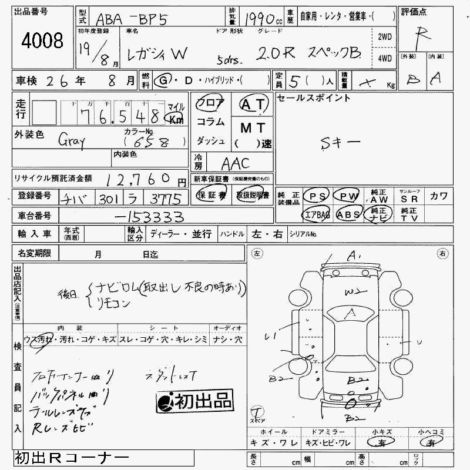 出品番号 4008
型式 ABA-BP5
排気量 1990cc
車歴 自家用・レンタ・営業車・( )
評価点 R
初年度登録 19/8月
車名 レガシィW
ドア 形状 5drs.
グレード 2.0R スペックB
2WD
4WD
外装 B
内装 A
車検 26年 8月
燃料 G・D・ハイブリッド・( )
定員 5( )人
積載量 Kg
走行 76,548 マイル Km
フロア
コラム
ダッシュ
AT
MT
( )速
セールスポイント
Sキー
外装色 Gray
カラーNo (658)
内装色
冷房 AAC
リサイクル預託済金額 12,760円
新車保証書
保証書
取扱説明書
登録番号 チバ 301 ラ 3775
純正装備品
PS PW 純正AW サンルーフSR カワ
エアBAG ABS 純正ナビ 純正TV
車台番号 -153333
輸入車 年式(西暦) 輸入区分 ディーラー・並行 ハンドル 左・右 シリアルNo.
名変期限 月 日迄
出品店記入
後日 ナビロム(取出し不良の時あり)
リモコン
内装 シート オーディオ
ウス汚れ・汚レ・コゲ・キズ スレ・コゲ・穴・キレ・シミ ナシ・穴
検査員記入
バックパネル
Rレーズヒビ
初出品
初出Rコーナー
左 右
A1
W2
A
U1
U
B2
B2
B2
T
スペア
ホイール ドアミラー 小キズ 小ヘコミ
キズ・ワレ キズ・ヒビ・ワレ 有 有
長さ cm 幅 cm 高さ cm